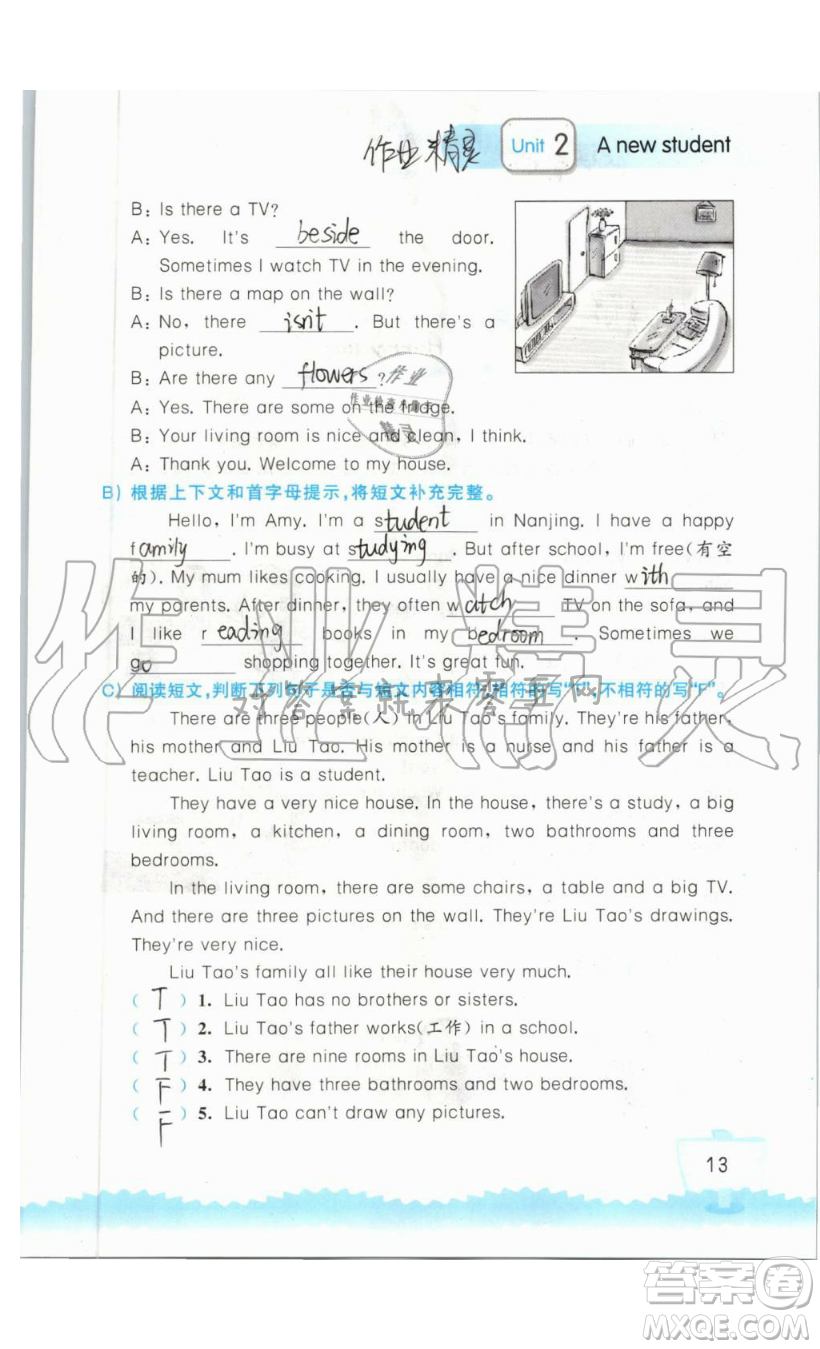 作业精灵 Unit 2 A new student
B: Is there a TV?
A: Yes. It's beside the door.
Sometimes I watch TV in the evening.
B: Is there a map on the wall?
A: No, there isn't. But there's a
picture.
B: Are there any flowers?
A: Yes. There are some on the fridge.
B: Your living room is nice and clean, I think.
A: Thank you. Welcome to my house.
B) 根据上下文和首字母提示,将短文补充完整。
Hello, I'm Amy. I'm a student in Nanjing. I have a happy
family. I'm busy at studying. But after school, I'm free(有空
的). My mum likes cooking. I usually have a nice dinner with
my parents. After dinner, they often watch TV on the sofa, and
I like reading books in my bedroom. Sometimes we
go shopping together. It's great fun.
C) 阅读短文,判断下列句子是否与短文内容相符,相符的写"T",不相符的写"F"。
There are three people(人) in Liu Tao's family. They're his father,
his mother and Liu Tao. His mother is a nurse and his father is a
teacher. Liu Tao is a student.
They have a very nice house. In the house, there's a study, a big
living room, a kitchen, a dining room, two bathrooms and three
bedrooms.
In the living room, there are some chairs, a table and a big TV.
And there are three pictures on the wall. They're Liu Tao's drawings.
They're very nice.
Liu Tao's family all like their house very much.
( T ) 1. Liu Tao has no brothers or sisters.
( T ) 2. Liu Tao's father works(工作) in a school.
( T ) 3. There are nine rooms in Liu Tao's house.
( F ) 4. They have three bathrooms and two bedrooms.
( F ) 5. Liu Tao can't draw any pictures.
13
作业精灵
对答案就来零五网
答案圈
MXQE.COM